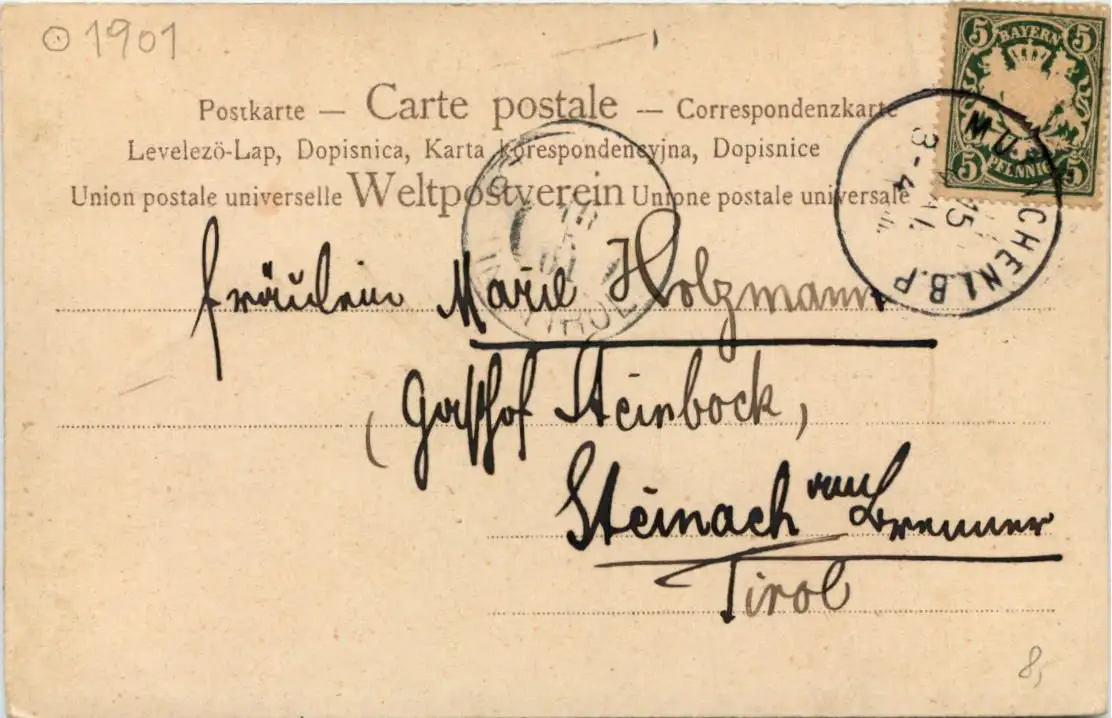 1901
BAYERN
5 5
5 PFENNIG 5
Postkarte — Carte postale — Correspondenzkarte
Levelezö-Lap, Dopisnica, Karta korespondencyjna, Dopisnice
Union postale universelle Weltpostverein Unione postale universale
MÜNCHEN 1. B.P.
15
3-4
TIROL
Fräulein Marie Holzmann
(Gasthof Steinbock,
Steinach am Brenner
Tirol
8,